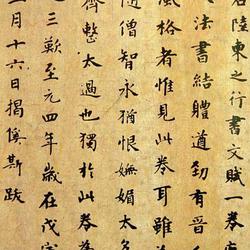 陸柬之行書文賦一卷
法書結體遒勁有晉
風格者惟見此卷耳雖
隨僧智永猶恨嫵媚太多
齊整太過也獨於此卷
三歎至元四年歲在戊寅
三月十六日揭傒斯跋